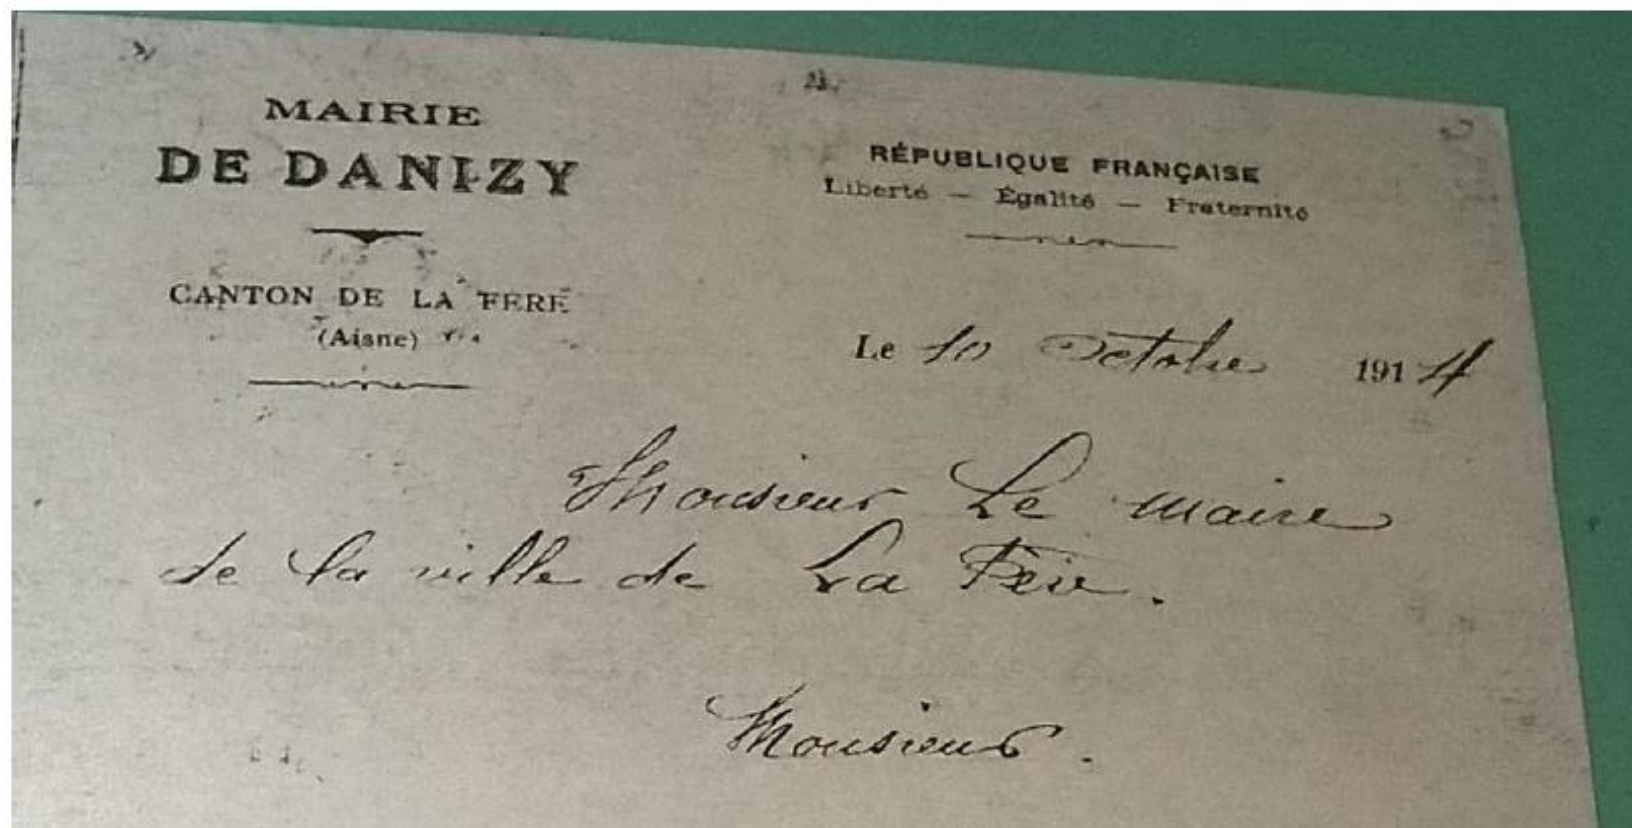 MAIRIE
DE DANIZY
CANTON DE LA FERE
(Aisne)
RÉPUBLIQUE FRANÇAISE
Liberté — Égalité — Fraternité
Le 10 Octobre 1914
Monsieur Le maire
de la ville de La Fère.
Monsieur.